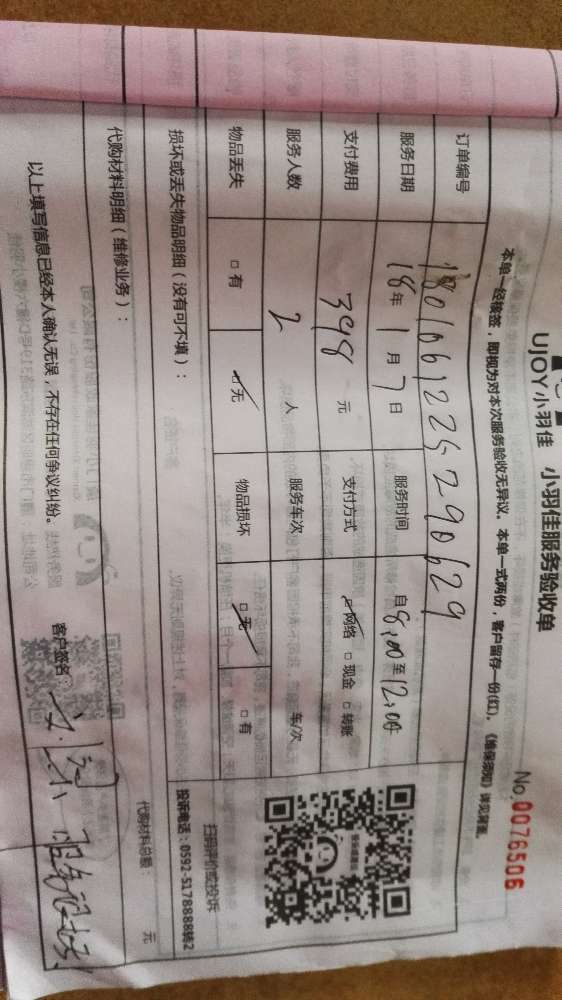 UJOY小羽佳 小羽佳服务验收单
No.0076506
本单一经核签，即视为对本次服务验收无异议。本单一式两份，客户留存一份(红)。《维保须知》详见背面。
订单编号 180106122529 0629
服务日期 18年 1月 7日 服务时间 自8:00至12:00
支付费用 398 元 支付方式 □网络 □现金 □转账
服务人数 2 人 服务车次 车/次
物品丢失 □有 □无 物品损坏 □无 □有
损坏或丢失物品明细（没有可不填）：
扫码评价或投诉
投诉电话：0592-5178888转2
代购材料明细（维修业务）：
代购材料总额： 元
以上填写信息已经本人确认无误，不存在任何争议纠纷。 客户签名：